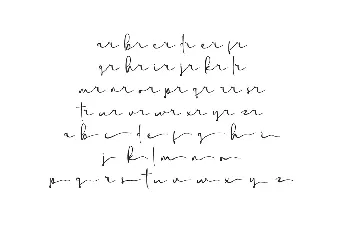 ar br cr dr er fr
gr hr ir jr kr lr
mr nr or pr qr rr sr
tr ur vr wr xr yr zr
a b c d e f g h i
j k l m n o
p q r s t u v w x y z